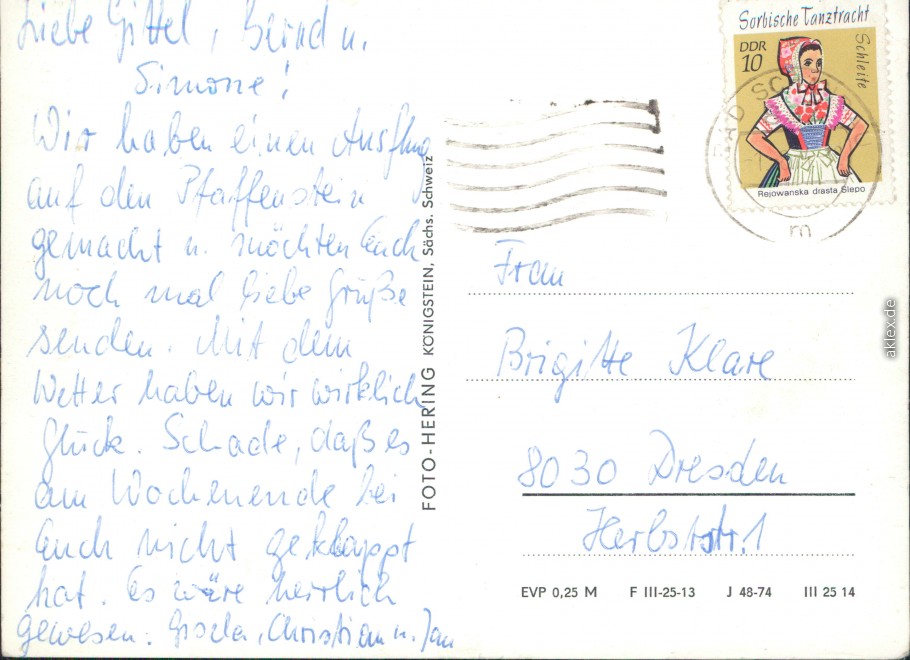 Liebe Gittel, Bernd u.
Simone!
Wir haben einen Ausflug
auf den Pfaffenstein
gemacht u. möchten Euch
noch mal liebe Grüße
senden. Mit dem
Wetter haben wir wirklich
Glück. Schade, daß es
am Wochenende bei
Euch nicht geklappt
hat. Es wäre herrlich
gewesen. Gisela, Christian u. Jan
FOTO-HERING KÖNIGSTEIN, Sächs. Schweiz
Sorbische Tanztracht
Schleife
DDR
10
Rejowanska drasta Slepo
m
Frau
Brigitte Klare
8030 Dresden
Herbststr. 1
EVP 0,25 M F III-25-13 J 48-74 III 25 14
aklex.de